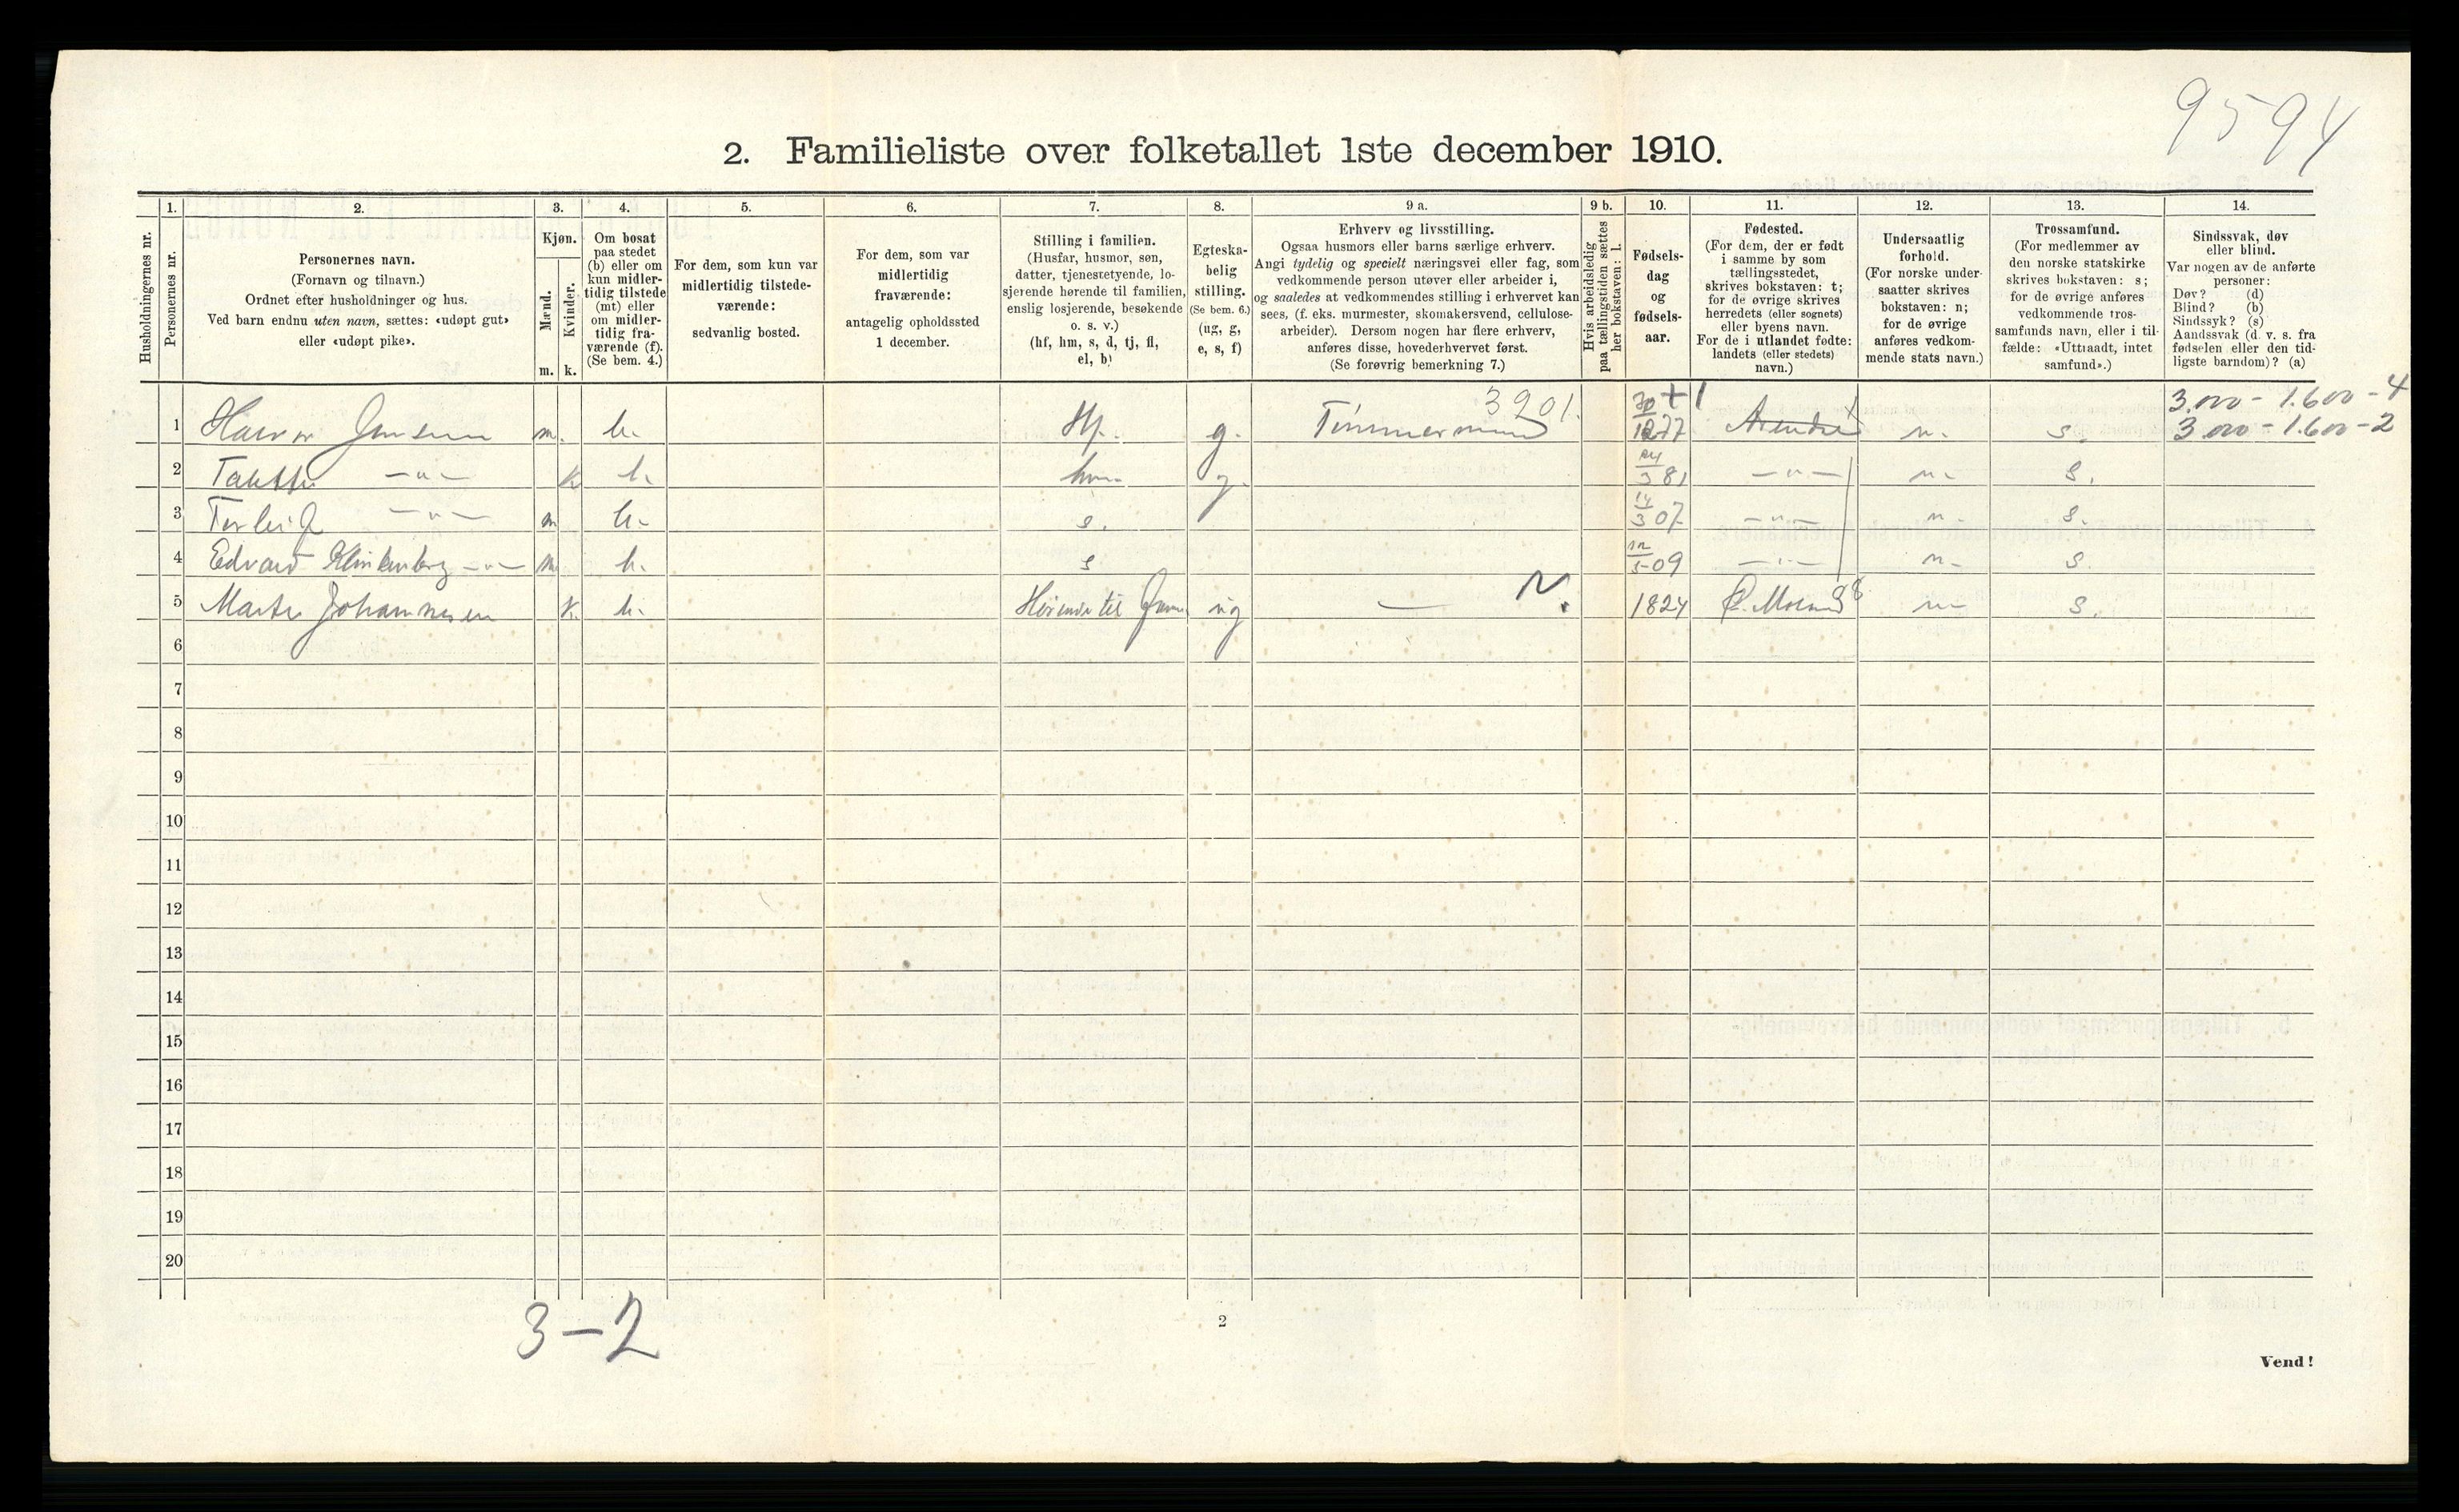 9594
2. Familieliste over folketallet 1ste december 1910.
1. 2. 3. 4. 5. 6. 7. 8. 9 a. 9 b. 10. 11. 12. 13. 14.
Husholdningernes nr.
Personernes nr.
Personernes navn.
(Fornavn og tilnavn.)
Ordnet efter husholdninger og hus.
Ved barn endnu uten navn, sættes: «udøpt gut»
eller «udøpt pike».
Kjøn.
Mænd.
Kvinder.
m. k.
Om bosat
paa stedet
(b) eller om
kun midler-
tidig tilstede
(mt) eller
om midler-
tidig fra-
værende (f).
(Se bem. 4.)
For dem, som kun var
midlertidig tilstede-
værende:
sedvanlig bosted.
For dem, som var
midlertidig
fraværende:
antagelig opholdssted
1 december.
Stilling i familien.
(Husfar, husmor, søn,
datter, tjenestetyende, lo-
sjerende hørende til familien,
enslig losjerende, besøkende
o. s. v.)
(hf, hm, s, d, tj, fl,
el, b)
Egteska-
belig
stilling.
(Se bem. 6.)
(ug, g,
e, s, f)
Erhverv og livsstilling.
Ogsaa husmors eller barns særlige erhverv.
Angi tydelig og specielt næringsvei eller fag, som
vedkommende person utøver eller arbeider i,
og saaledes at vedkommendes stilling i erhvervet kan
sees, (f. eks. murmester, skomakersvend, cellulose-
arbeider). Dersom nogen har flere erhverv,
anføres disse, hovederhvervet først.
(Se forøvrig bemerkning 7.)
Hvis arbeidsledig
paa tællingstiden sættes
her bokstaven: l.
Fødsels-
dag
og
fødsels-
aar.
Fødested.
(For dem, der er født
i samme by som
tællingsstedet,
skrives bokstaven: t;
for de øvrige skrives
herredets (eller sognets)
eller byens navn.
For de i utlandet fødte:
landets (eller stedets)
navn.)
Undersaatlig
forhold.
(For norske under-
saatter skrives
bokstaven: n;
for de øvrige
anføres vedkom-
mende stats navn.)
Trossamfund.
(For medlemmer av
den norske statskirke
skrives bokstaven: s;
for de øvrige anføres
vedkommende tros-
samfunds navn, eller i til-
fælde: «Uttraadt, intet
samfund».)
Sindssvak, døv
eller blind.
Var nogen av de anførte
personer:
Døv? (d)
Blind? (b)
Sindssyk? (s)
Aandssvak (d. v. s. fra
fødselen eller den tid-
ligste barndom)? (a)
3901. 3.000 - 1.600 - 4
1 Jensen m. b. Hf. g. Tømmermand 77 Arendal t n. s. 3.000 - 1.600 - 2
2 —„— k b. hm. g. 81 —„— n. s.
3 Torleif —„— m b. s. 14/3 07 —„— n. s.
4 Edvard Klinkenberg —„— m b. s 09 —„— n. s.
5 Johannesen k. b. Hørende til ug — N. 1824 n s.
6
7
8
9
10
11
12
13
14
15
16
17
18
19
20
3-2
2
Vend!